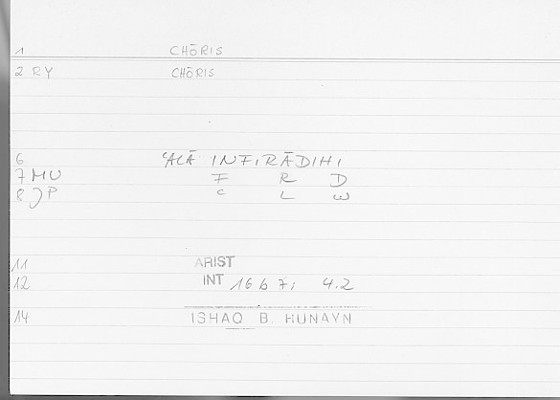 1 CHŌRIS
2 RY CHŌRIS
6 ʿALĀ INFIRĀDIHI
7 MU F R D
8 JP C L W
11 ARIST
12 INT 16 b 7, 4.2
14 ISHAQ B. HUNAYN